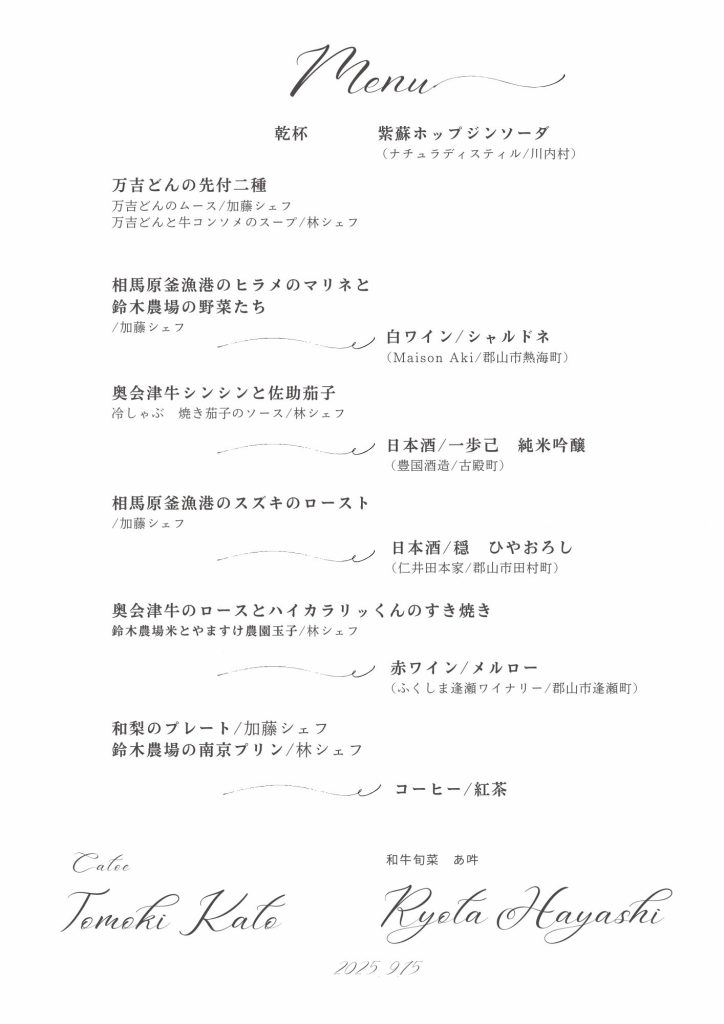 Menu
乾杯 紫蘇ホップジンソーダ
（ナチュラディスティル/川内村）
万吉どんの先付二種
万吉どんのムース/加藤シェフ
万吉どんと牛コンソメのスープ/林シェフ
相馬原釜漁港のヒラメのマリネと
鈴木農場の野菜たち
/加藤シェフ
白ワイン/シャルドネ
（Maison Aki/郡山市熱海町）
奥会津牛シンシンと佐助茄子
冷しゃぶ　焼き茄子のソース/林シェフ
日本酒/一歩己　純米吟醸
（豊国酒造/古殿町）
相馬原釜漁港のスズキのロースト
/加藤シェフ
日本酒/穏　ひやおろし
（仁井田本家/郡山市田村町）
奥会津牛のロースとハイカラリッくんのすき焼き
鈴木農場米とやますけ農園玉子/林シェフ
赤ワイン/メルロー
（ふくしま逢瀬ワイナリー/郡山市逢瀬町）
和梨のプレート/加藤シェフ
鈴木農場の南京プリン/林シェフ
コーヒー/紅茶
Catoe
Tomoki Kato
和牛旬菜　あ吽
Ryota Hayashi
2025. 9.15